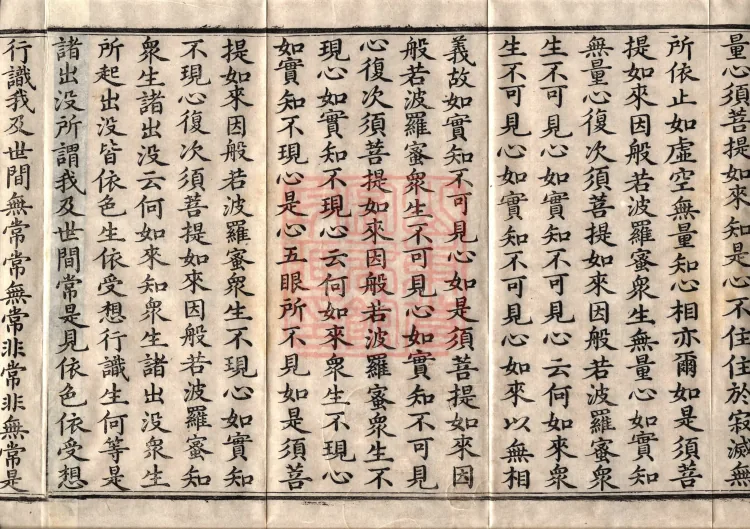 量心須菩提如來知是心不住住於寂滅無
所依止如虛空無量知心相亦爾如是須菩
提如來因般若波羅蜜衆生無量心如實知
無量心復次須菩提如來因般若波羅蜜衆
生不可見心如實知不可見心云何如來衆
生不可見心如實知不可見心如來以無相
義故如實知不可見心如是須菩提如來因
般若波羅蜜衆生不可見心如實知不可見
心復次須菩提如來因般若波羅蜜衆生不
現心如實知不現心云何如來衆生不現心
如實知不現心是心五眼所不見如是須菩
提如來因般若波羅蜜衆生不現心如實知
不現心復次須菩提如來因般若波羅蜜知
衆生諸出没云何如來知衆生諸出没衆生
所起出没皆依色生依受想行識生何等是
諸出没所謂我及世間常是見依色依受想
行識我及世間無常常無常非常非無常是